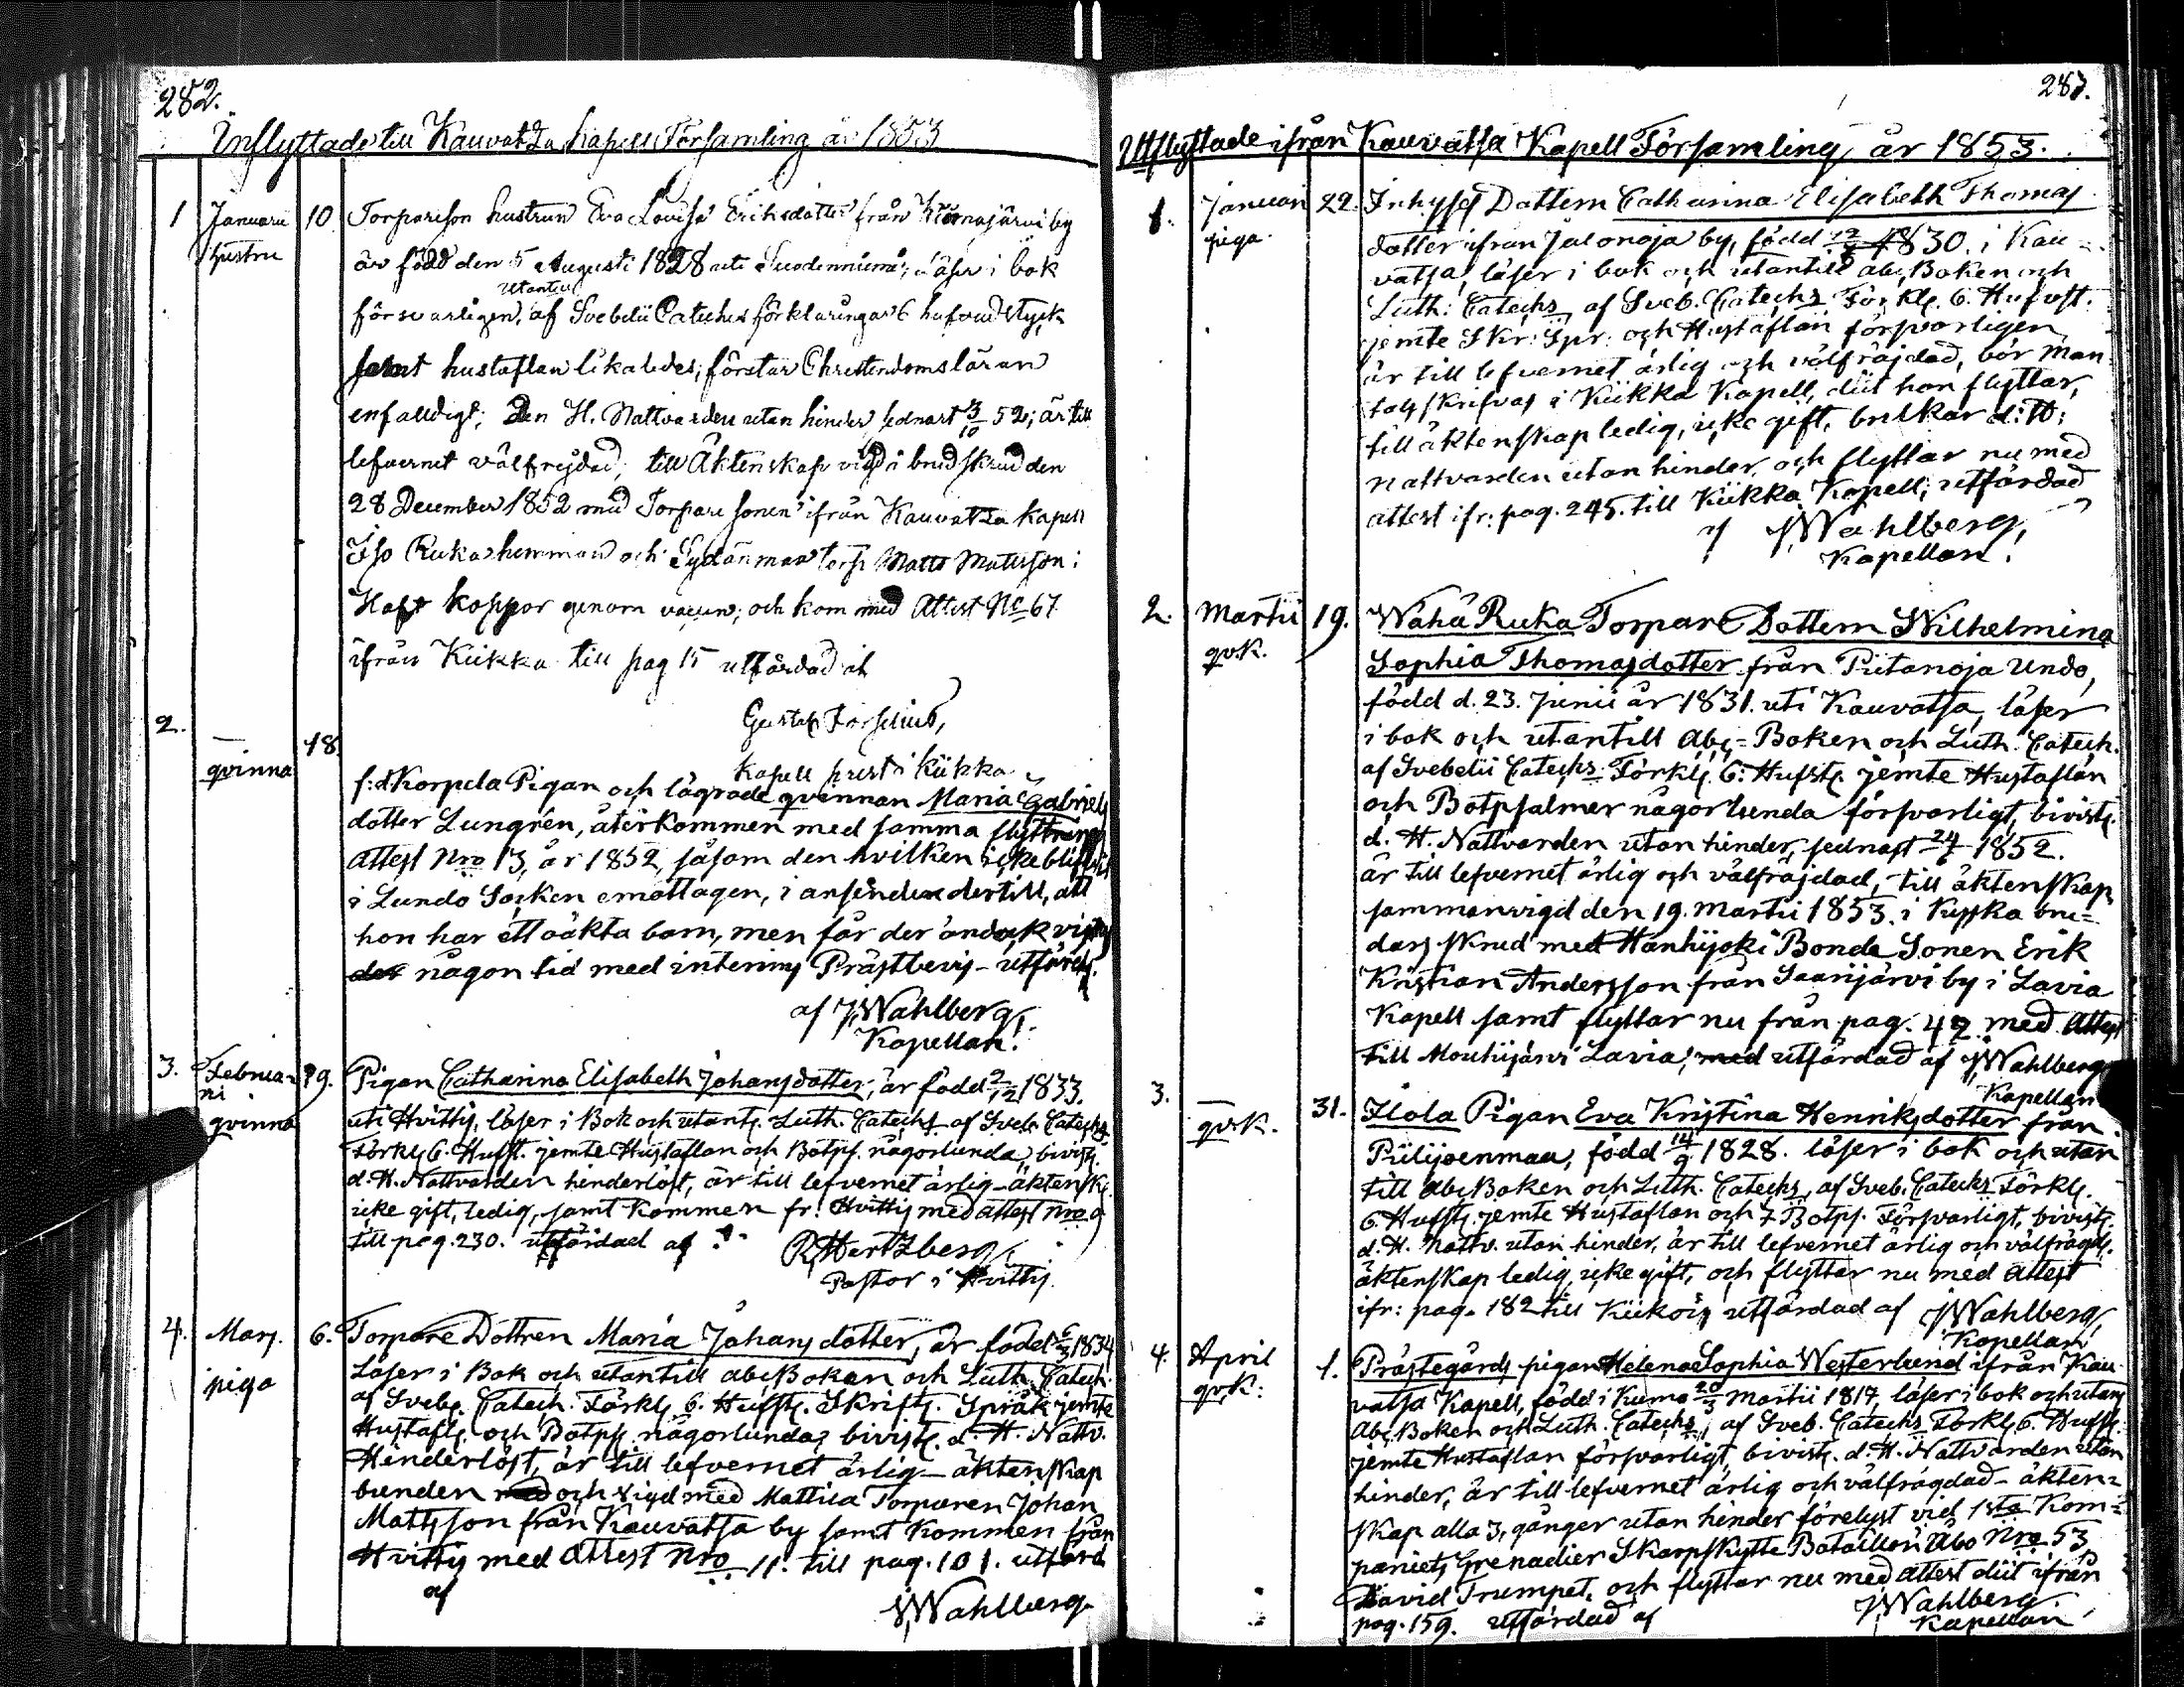 282.
Inflyttade till Kauvatsa Kapell Församling år 1853
1 Januarii 10 Torpareson hustrun Eva Lovisa Eriksdotter från Kiimajärvi by
hustru är född den 5 Augusti 1828 uti Suodenniemi; läser i bok
utantill
försvarligen, af Svebelii Cateches förklaringar 6 hufvudstyck
samt hustaflan likaledes; förstår Christendomsläran
enfaldigt; Den H. Nattvarden utan hinder sednast 3/10 52; är till
lefvernet välfrejdad; till Äktenskap vigd i brudskrud den
28 December 1852 med Torpare sonen ifrån Kauvatsa Kapell
Iso Ruka hemman och Sydänmaa torp Matts Matsson:
Haft koppor genom vaccin; och kom med Attest No 67
ifrån Kiikka till pag 15 utfärdad af
Gustaf Forselius,
Kapell prest i Kiikka
2. — 18. f: d Korpela Pigan och lägrade qvinnan Maria Gabriels
qvinna dotter Lungrén, återkommen med samma flyttnings
attest Nro 13, år 1852, såsom den hvilken icke blifvit
i Lundo Socken emottagen, i anseende dertill, att
hon har ett oäkta barn, men får der ändock vistas
någon tid med interims Prästbevis - utfärd.
af J. Wahlberg,
Kapellan.
3. Februa- 19. Pigan Catharina Elisabeth Johansdotter, är född 2/12 1833.
rii
qvinna uti Hvittis, läser i Bok och utant. Luth. Catechs af Sveb. Catechs
Förkl. 6. Hufst. jemte Hustaflan och Botps. någorlunda, bivist.
d. H. Nattvarden hinderlöst, är till lefvernet ärlig - äktensk.
icke gift, ledig, samt kommen fr. Hvittis med attest Nro 9
till pag. 230. utfärdad af R. Hertzberg,
Pastor i Hvittis.
4. Mars. 6. Torpare Dottren Maria Johans dotter, är född 1834
piga Läser i Bok och utantill abc Boken och Luth. Catech.
af Sveb. Catech. Förkl. 6. Hufst. Skrift. Språk jemte
Hustafl. och Botps. någorlunda, bivist. d. H. Nattv.
Hinderlöst, är till lefvernet ärlig - äktenskap
bunden och vigd med Mattila Torparen Johan
Mattsson från Kauvatsa by samt kommen från
Hvittis med Attest Nro 11. till pag. 101. utfärd
af
J. Wahlberg.
283.
Utflyttade ifrån Kauvatsa Kapell Församling år 1853.
1. Januari 22. Inhyses Dottern Catharina Elisabeth Thomas
piga. dotter ifrån Jalonoja by, född 1830. i Kau-
vatsa, läser i bok och utantill abc Boken och
Luth: Catechs af Sveb. Catechs Förkl. 6. Hufvst.
jemte Skr: Spr: och Hustaflan försvarligen
är till lefvernet ärlig och välfräjdad, bör man-
tals skrifvas i Kiikka Kapell, diit hon flyttar,
till äktenskap ledig, icke gift, brukar d: H:
nattvarden utan hinder, och flyttar nu med
attest ifr: pag. 245. till Kiikka Kapell; utfärdad
af J. Wahlberg,
Kapellan.
2. Martii 19. Wähä Ruka Torpare Dottern Wilhelmina
qvk. Sophia Thomasdotter från Piitanoja Undo,
född d. 23. Junii år 1831. uti Kauvatsa, läser
i bok och utantill Abc-Boken och Luth. Catech.
af Svebelii Catechs Förkl. 6: Hufst. jemte Hustaflan
och Botpsalmer någorlunda försvarligt, bivist.
d. H. Nattvarden utan hinder, sednast 24/6 1852.
är till lefvernet ärlig och välfräjdad, till äktenskap
sammanvigd den 19. Martii 1853. i Kyska bru-
dars skrud med Hanhijoki Bonde Sonen Erik
Kristian Andersson från Saarijärvi by i Lavia
Kapell samt flyttar nu från pag. 42 med Attest
till Mouhijärvi Lavia, utfärdad af J. Wahlberg
Kapellan
3. — 31. Ilola Pigan Eva Kristina Henriksdotter från
qvk. Piilijoenmaa, född 14/9 1828. läser i bok och utan
till Abc Boken och Luth. Catechs, af Sveb. Catechs Förkl.
6. Hufst. jemte Hustaflan och 7 Botps. Försvarligt, bivist.
d. H. Nattv. utan hinder, är till lefvernet ärlig och välfrägd.
äktenskap ledig, icke gift, och flyttar nu med Attest
ifr: pag. 182 till Kiikois utfärdad af J. Wahlberg,
Kapellan
4. April 1. Prästegårds pigan Helena Sophia Westerlund ifrån Kau-
qvk: vatsa Kapell, född i Kumo 20/3 Martii 1817, läser i bok och utant
Abc Boken och Luth. Catechs, af Sveb. Catechs Förkl. 6. Hufst.
jemte Hustaflan försvarligt, bivist. d. H. Nattvarden utan
hinder, är till lefvernet ärlig och välfrägdad - äkten-
skap alla 3, gånger utan hinder förelyst vid 1sta Kom-
paniets Grenadier Skarpskytte Bataillon Åbo Nro 53
David Trumpet, och flyttar nu med attest diit ifrån
pag. 159. utfärdad af J. Wahlberg.
Kapellan